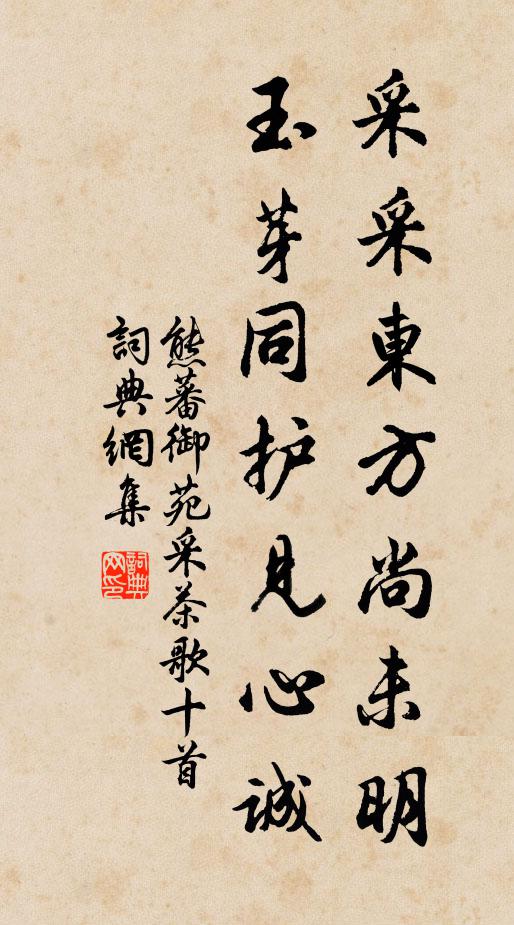 采采東方尚未明
玉芽同护見心誠
熊蕃御苑采茶歌十首
詞典網集
詞典網印